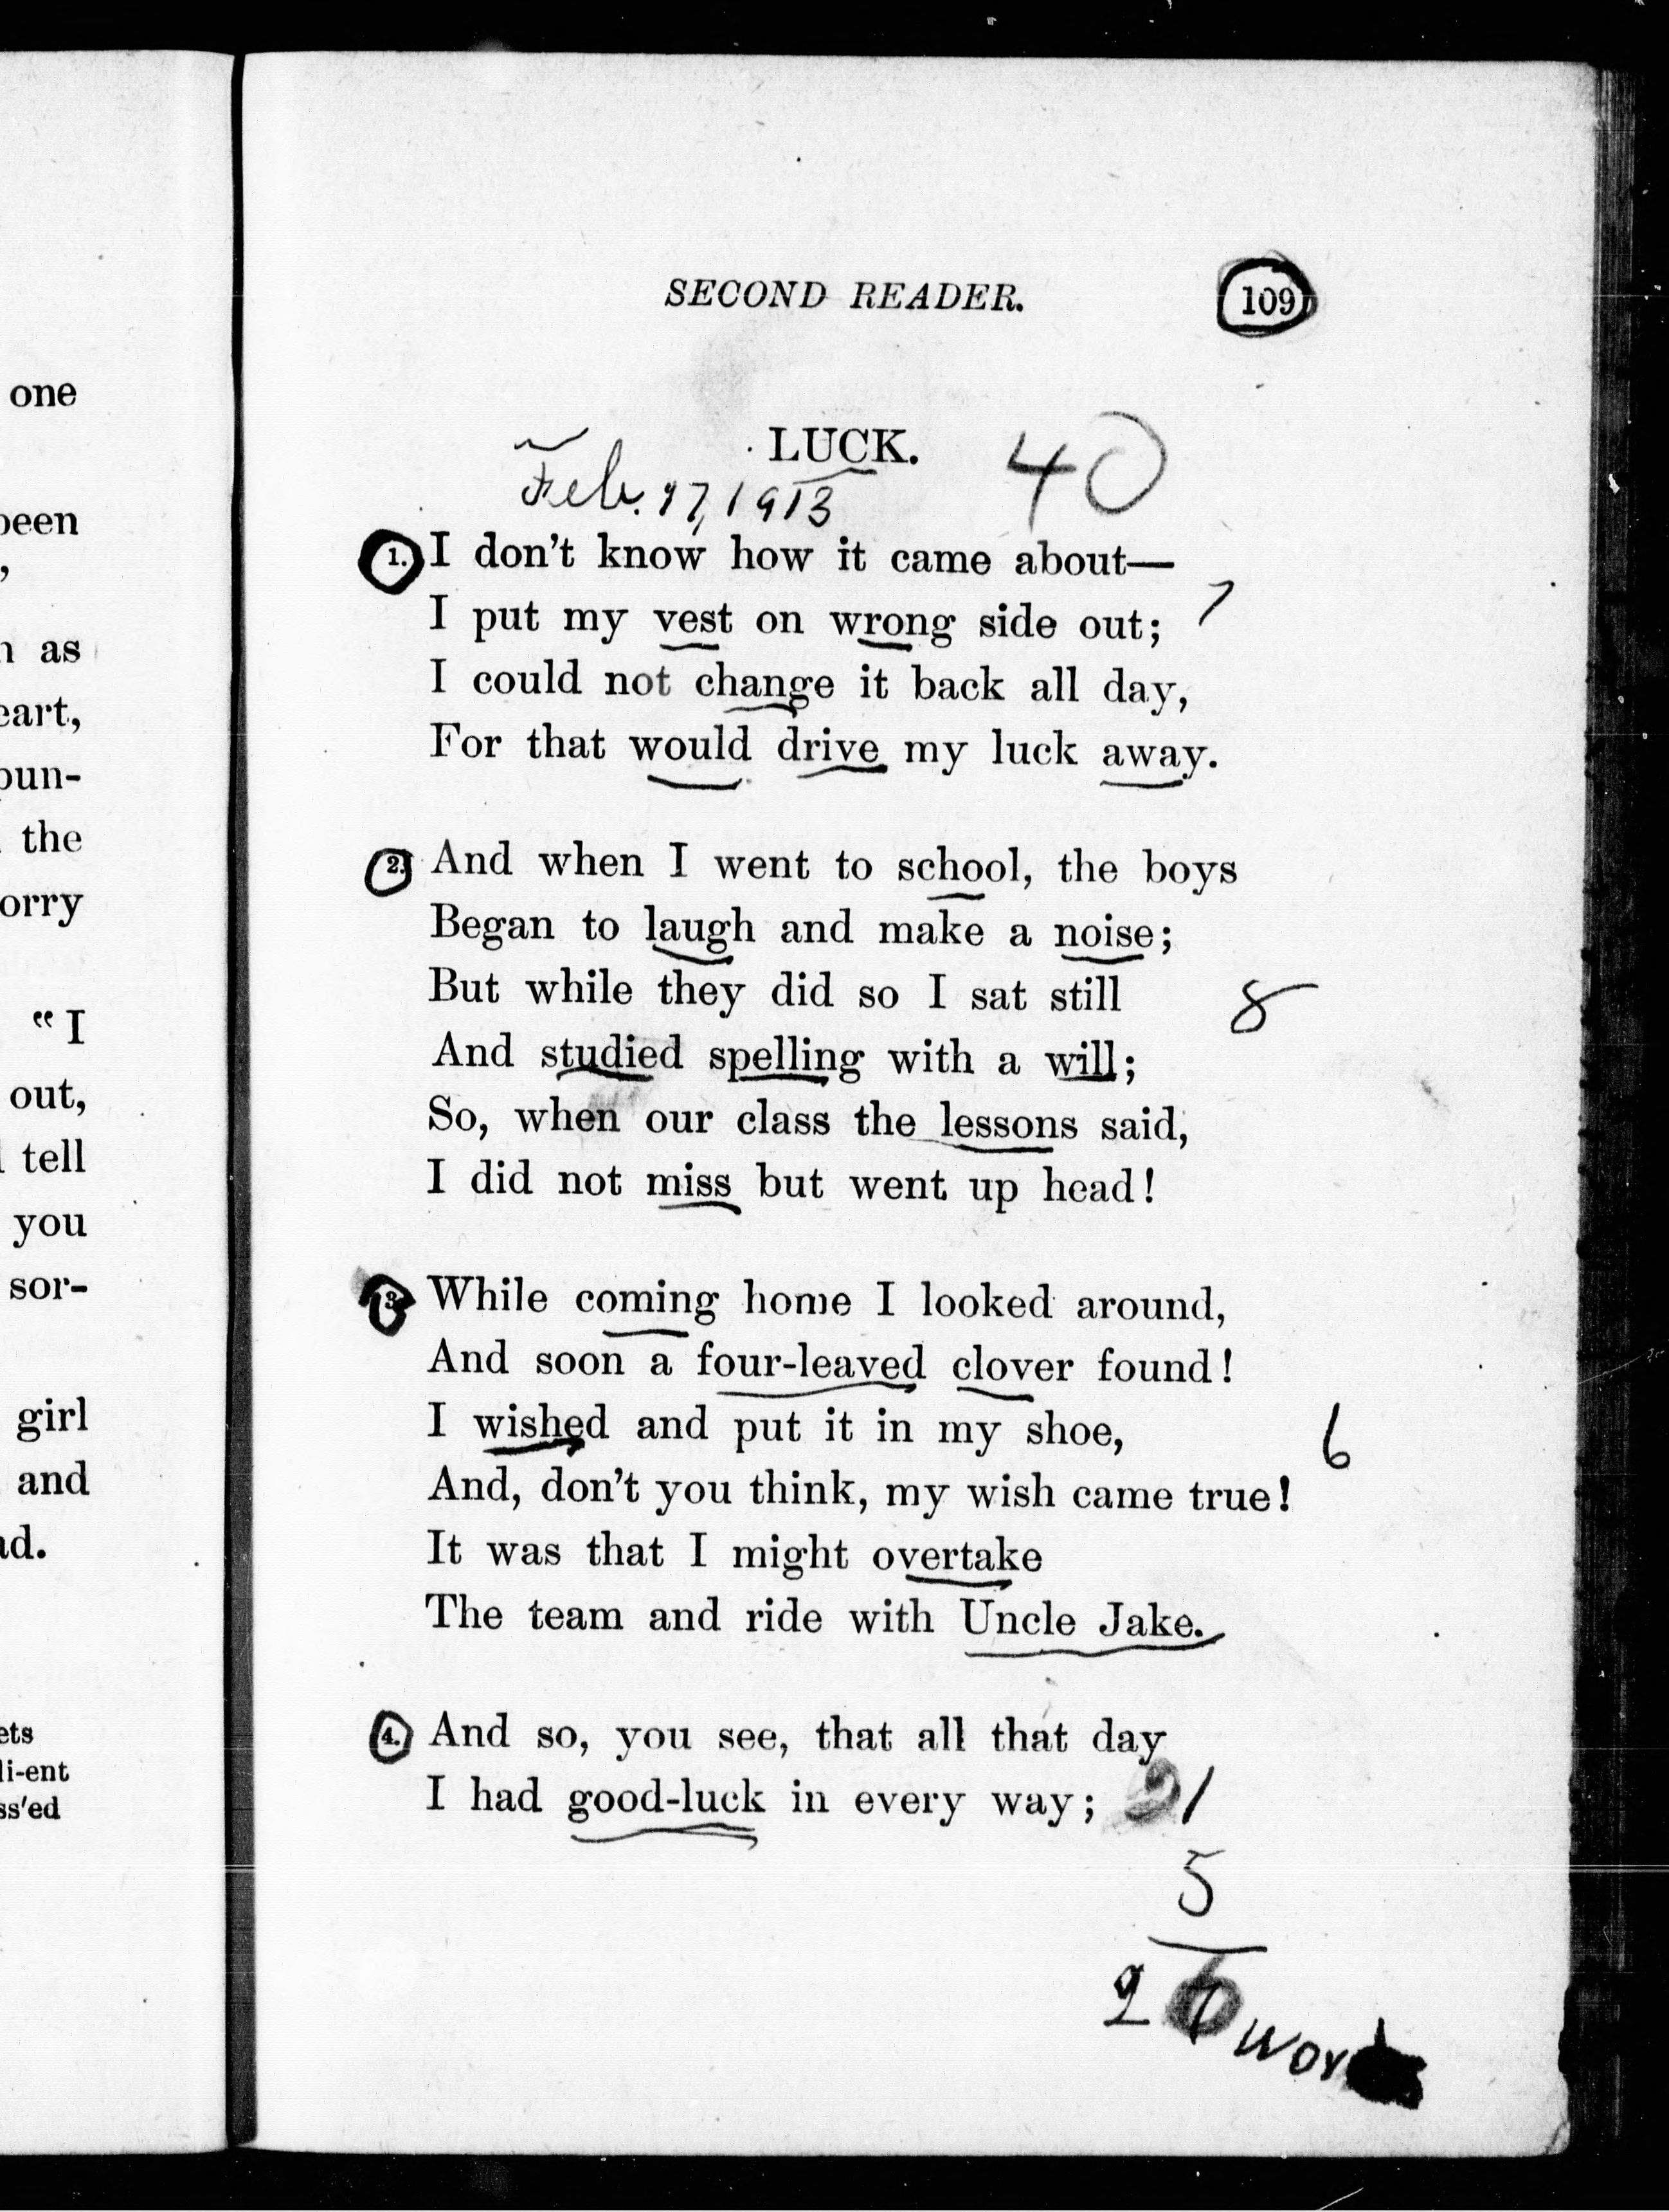 one
been
,
as
eart,
oun-
the
orry
“I
out,
tell
you
sor-
girl
and
ad.
ets
li-ent
ss'ed
SECOND READER. 109
LUCK. 40
Feb. 17, 1913
1. I don't know how it came about—
I put my vest on wrong side out; 7
I could not change it back all day,
For that would drive my luck away.
2. And when I went to school, the boys
Began to laugh and make a noise;
But while they did so I sat still 8
And studied spelling with a will;
So, when our class the lessons said,
I did not miss but went up head!
3. While coming home I looked around,
And soon a four-leaved clover found!
I wished and put it in my shoe, 6
And, don't you think, my wish came true!
It was that I might overtake
The team and ride with Uncle Jake.
4. And so, you see, that all that day
I had good-luck in every way; 21
5
26 words